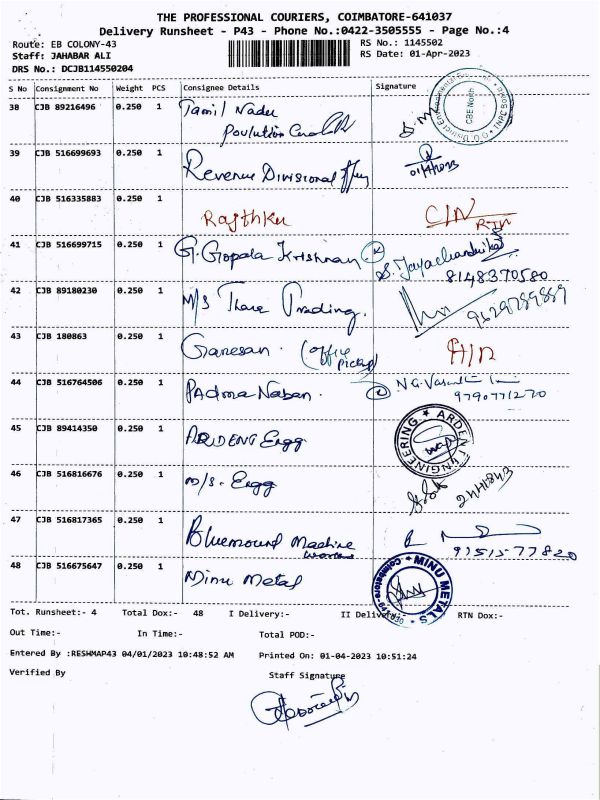 THE PROFESSIONAL COURIERS, COIMBATORE-641037
Delivery Runsheet - P43 - Phone No.:0422-3505555 - Page No.:4
Route: EB COLONY-43
RS No.: 1145502
Staff: JAHABAR ALI
RS Date: 01-Apr-2023
DRS No.: DCJB114550204
S No Consignment No Weight PCS Consignee Details Signature
38 CJB 89216496 0.250 1 Tamil Nadu
Poulution
CBE North
39 CJB 516699693 0.250 1 Revenue Divisional
01/4/2023
40 CJB 516335883 0.250 1 Rajthku C/N
RTN
41 CJB 516699715 0.250 1 G. Gopala Krishnan S. Jayachandrika
8148370580
42 CJB 89180230 0.250 1 M/S Thare Trading. 9629789889
43 CJB 180863 0.250 1 Ganesan. (office
pickup)
44 CJB 516764506 0.250 1 PAdma Naban. N.G.
9790771270
45 CJB 89414350 0.250 1 ARDENG Engg
ARDEN ENGINEERING
46 CJB 516816676 0.250 1 M/s. Engg 2441843
47 CJB 516817365 0.250 1 Bluemound Machine
9151577820
48 CJB 516675647 0.250 1 Minu Metal
MINU METALS
Tot. Runsheet:- 4 Total Dox:- 48 I Delivery:- II Delivery:- RTN Dox:-
Out Time:- In Time:- Total POD:-
Entered By :RESHMAP43 04/01/2023 10:48:52 AM Printed On: 01-04-2023 10:51:24
Verified By Staff Signature